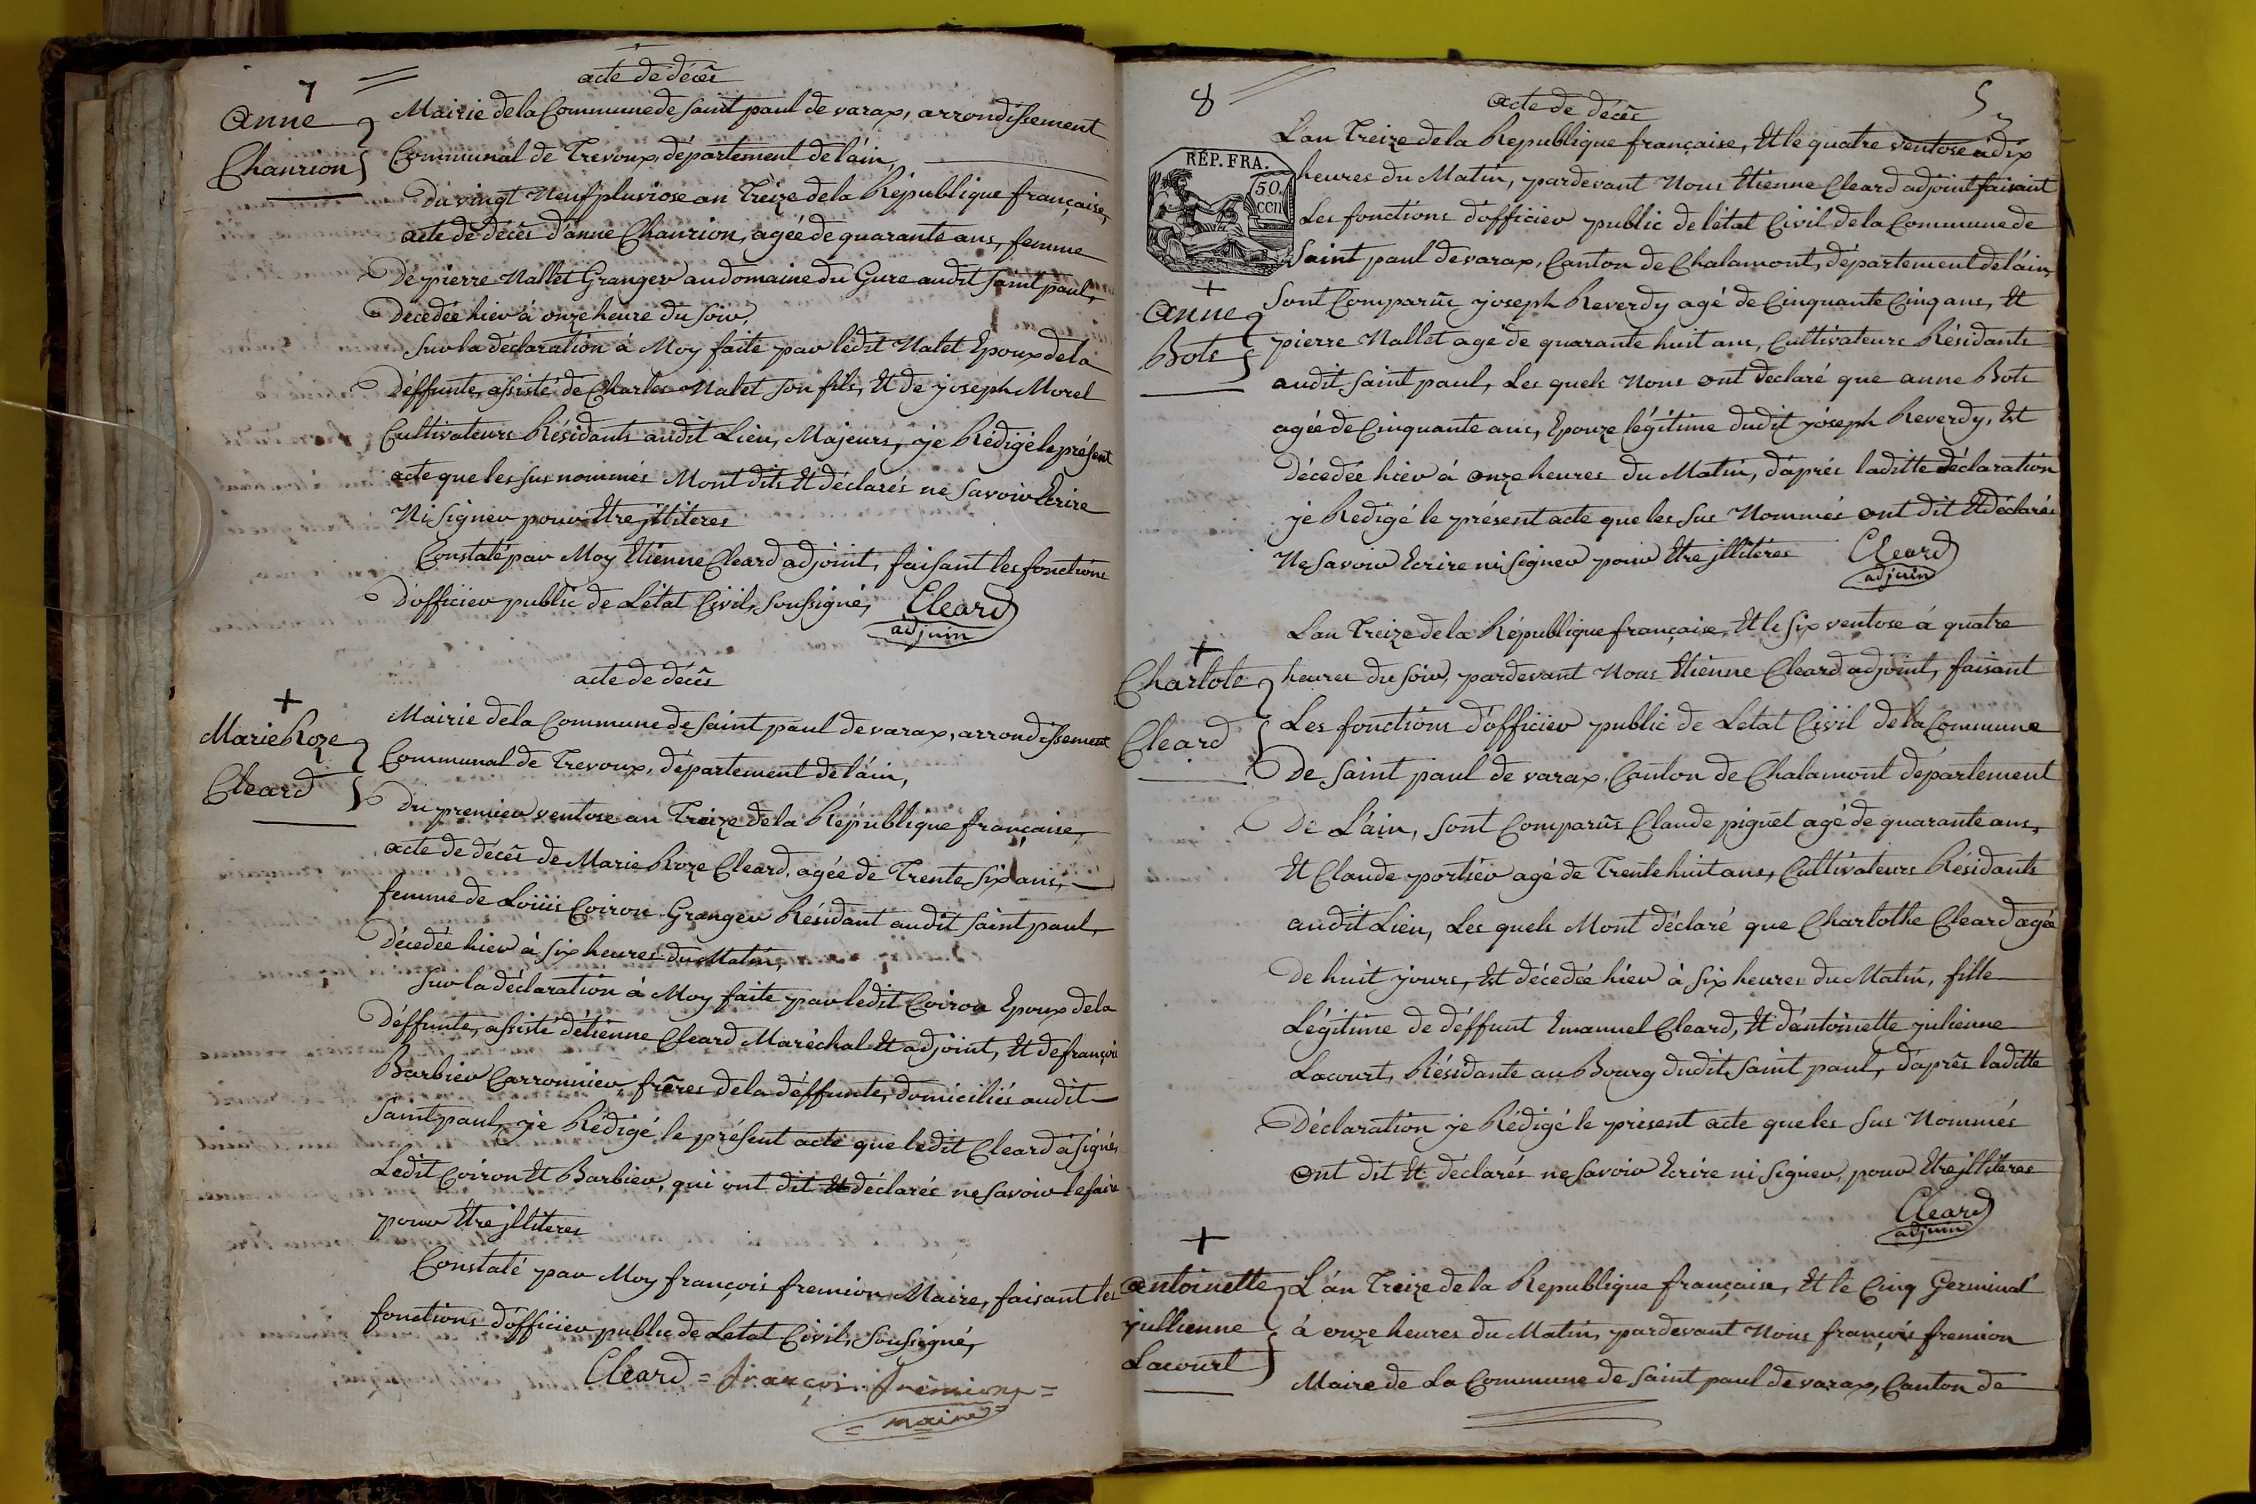 7
acte de décès
Anne
Chanrion
Mairie de la Commune de Saint paul de varax, arrondissement
Communal de Trevoux, département de láin,
Du vingt Neuf pluviose an Treize de la République française,
acte de décès d'anne Chanrion, agée de quarante ans, femme
De pierre Nallet Granger au domaine du Gure audit Saint paul,
Décedée hier à onze heure du Soir.
Sur la déclaration à Moy faite par ledit Nalet Epoux de la
Déffunte, assisté de Charles Nalet son fils, Et de joseph Morel
Cultivateurs Résidants audit Lieu, Majeurs, je Rédigé le présent
acte que les sus nommés Mont dits Et déclarés ne Savoir Ecrire
Ni Signer pour Etre jlliteres
Constaté par Moy Etienne Cleard adjoint, faisant les fonctions
D'officier public de L'état Civil, Soussigné, Cleard
adjuin
acte de décès
Marie Roze
Cleard
Mairie de la Commune de Saint paul de varax, arrondissement
Communal de Trevoux, département de láin,
Du premier ventose an Treize de la République française,
acte de décès de Marie Roze Cleard, agée de Trente Six ans,
femme de Loüis Coiron Granger Résidant audit Saint paul,
Décedée hier à Six heures du Matin,
Sur la déclaration à Moy faite par ledit Coiron Epoux de la
Déffunte, assisté d'étienne Cleard Maréchal Et adjoint, Et de françois
Barbier Carronnier, frères de la déffunte, domiciliés audit
Saint paul, je Rédigé le présent acte que ledit Cleard à Signé,
Ledit Coiron Et Barbier, qui ont dit Et déclarés ne Savoir le faire
pour Etre jlliteres
Constaté par Moy françois fremion Maire, faisant les
fonctions d'officier public de Letat Civil, Sousigné,
Cleard = françois fremion =
= maire =
8
5
Acte de décès
RÉP. FRA.
50.
cen
Anne
Bots
Lan Treize de la République française, Et le quatre ventose à dix
heures du Matin, pardevant Nous Etienne Cleard adjoint faisant
Les fonctions d'officier public de létat Civil de la Commune de
Saint paul de varax, Canton de Chalamont, département de láin,
Sont Comparûs joseph Reverdy agé de Cinquante Cinq ans, Et
pierre Nallet agé de quarante huit ans, Cultivateurs Résidants
audit Saint paul, Les quels Nous ont declaré que anne Bots
agée de Cinquante ans, Epouze légitime dudit joseph Reverdy, Est
Décedée hier à onze heures du Matin, d'aprés laditte déclaration
je Redigé le présent acte que les Sus Nommés ont dit Et déclarés
Ne Savoir Ecrire ni Signer pour Etre jllitéres Cleard
adjuin
Charlote
Cleard
Lan Treize de la République française, Et le Six ventose à quatre
heures du Soir, pardevant Nous Etienne Cleard adjoint, faisant
Les fonctions d'officier public de Letat Civil de la Commune
De Saint paul de varax, Canton de Chalamont département
De L'ain, Sont Comparûs Claude piguet agé de quarante ans,
Et Claude portier agé de Trente huit ans, Cultivateurs Résidants
audit Lieu, Les quels Mont déclaré que Charlothe Cleard agée
De huit jours, Est décedée hier à Six heures du Matin, fille
Légitime de déffunt Emanuel Cleard, Et d'antoinette julienne
Lacourt, Résidante au Bourg dudit Saint paul, d'après laditte
Déclaration je Rédigé le présent acte que les Sus Nommés
ont dit Et déclarés ne Savoir Ecrire ni Signer, pour Etre jlliteres
Cleard
adjuin
Antoinette
jullienne
Lacourt
L'an Treize de la République française, Et le Cinq Germinal
à onze heures du Matin, pardevant Nous françois fremion
Maire de La Commune de Saint paul de varax, Canton de